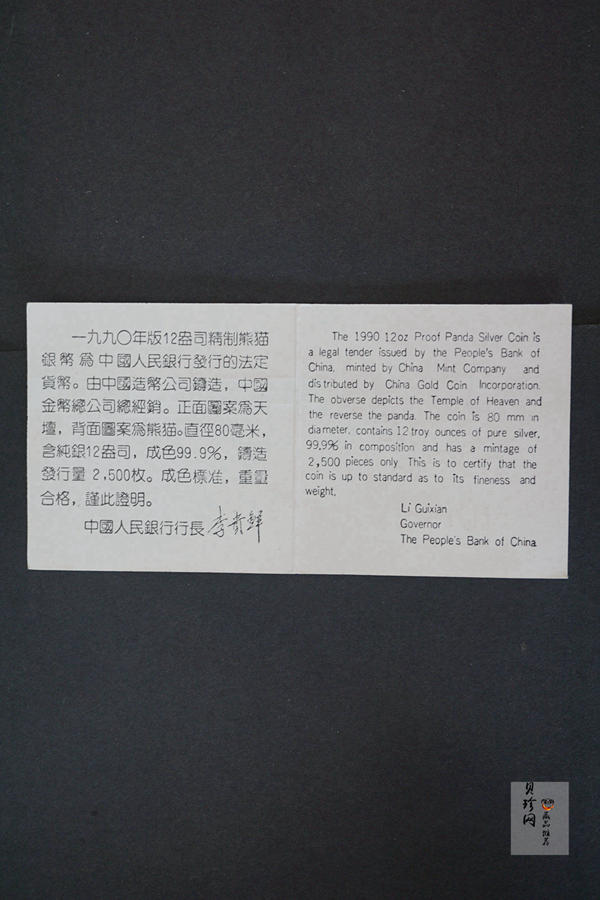 一九九〇年版12盎司精制熊猫
銀幣為中國人民銀行發行的法定
貨幣。由中國造幣公司鑄造，中國
金幣總公司總經銷。正面圖案為天
壇，背面圖案為熊猫。直徑80毫米，
含純銀12盎司，成色99.9%，鑄造
發行量 2,500枚。成色標准，重量
合格，謹此證明。
中國人民銀行行長 李貴鮮
The 1990 12oz Proof Panda Silver Coin is
a legal tender issued by the People's Bank of
China, minted by China Mint Company and
distributed by China Gold Coin Incorporation.
The obverse depicts the Temple of Heaven and
the reverse the panda. The coin is 80 mm in
diameter, contains 12 troy ounces of pure silver,
99.9% in composition and has a mintage of
2,500 pieces only. This is to certify that the
coin is up to standard as to its fineness and
weight.
Li Guixian
Governor
The People's Bank of China
贝珍网
藏品推荐